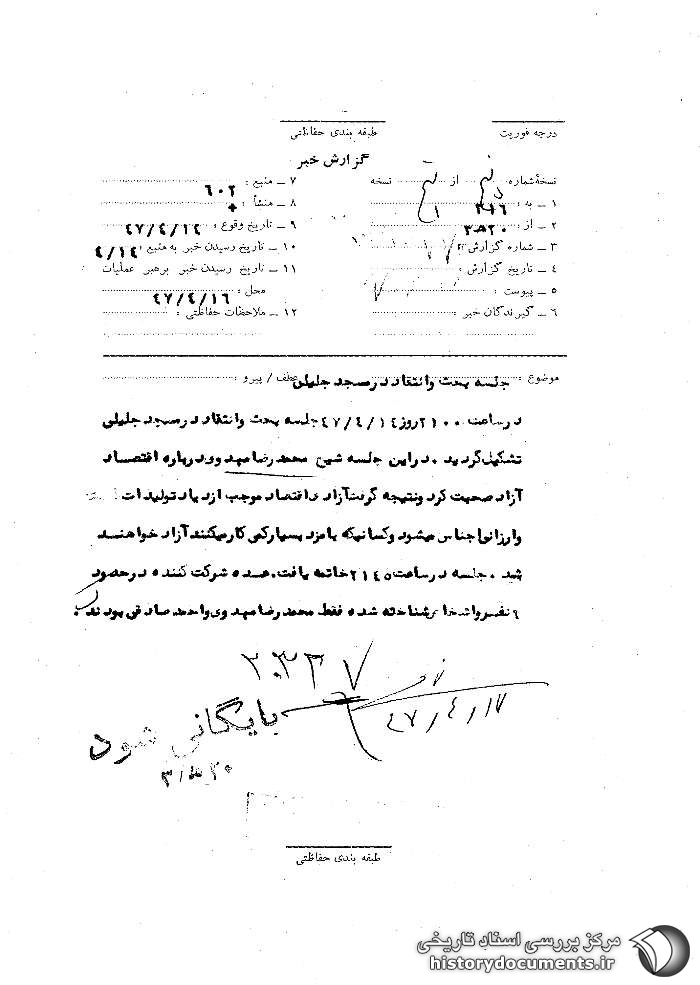 درجه فوریت
طبقه بندی حفاظتی
گزارش خبر
نسخهٔ شماره از نسخه
۱ – به : ۳۱۶
۲ – از : ۲۰ه۳
۳ – شماره گزارش :
۴ – تاریخ گزارش :
۵ – پیوست :
۶ – گیرندگان خبر :
۷ – منبع : ۶۰۲
۸ – منشأ :
۹ – تاریخ وقوع : ۴۷/۴/۱۴
۱۰ – تاریخ رسیدن خبر به منبع : ۴/۱۴
۱۱ – تاریخ رسیدن خبر برهبر عملیات
محل : ۴۷/۴/۱۶
۱۲ – ملاحظات حفاظتی :
موضوع : جلسه بحث وانتقاد درمسجد جلیلی عطف / پیرو :
درساعت ۲۱۰۰ روز ۴۷/۴/۱۴ جلسه بحث وانتقاد درمسجد جلیلی
تشکیل گردید ۰ دراین جلسه شیخ محمد رضا مهدوی درباره اقتصاد
آزاد صحبت کرد ونتیجه گرفت آزادی اقتصاد موجب ازدیاد تولیدات
وارزانی اجناس میشود وکسانیکه بامزد بسیارکمی کارمیکنند آزاد خواهند
شد ۰ جلسه درساعت ۲۱۴۵ خاتمه یافت ۰ عده شرکت کننده درحدود
۹ نفر واشخاص شناخته شده فقط محمد رضا مهدوی واحمد صادقی بودند ۰
۲۰۳۳۷
۴۷/۴/۱۷
بایگانی شود
طبقه بندی حفاظتی
مرکز بررسی اسناد تاریخی
historydocuments.ir